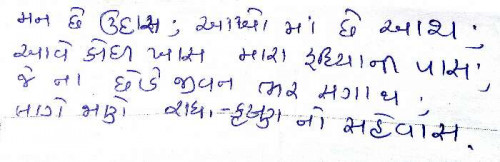 મન છે ઉદાસ; આંખો માં છે આશ;
આવે કોઈ ખાસ મારા હ્રદિયાની પાસ;
જે ના છોડે જીવન ભર સંગાથ;
જાણે મળ્યો રાધા-કૃષ્ણ નો સહેવાસ.